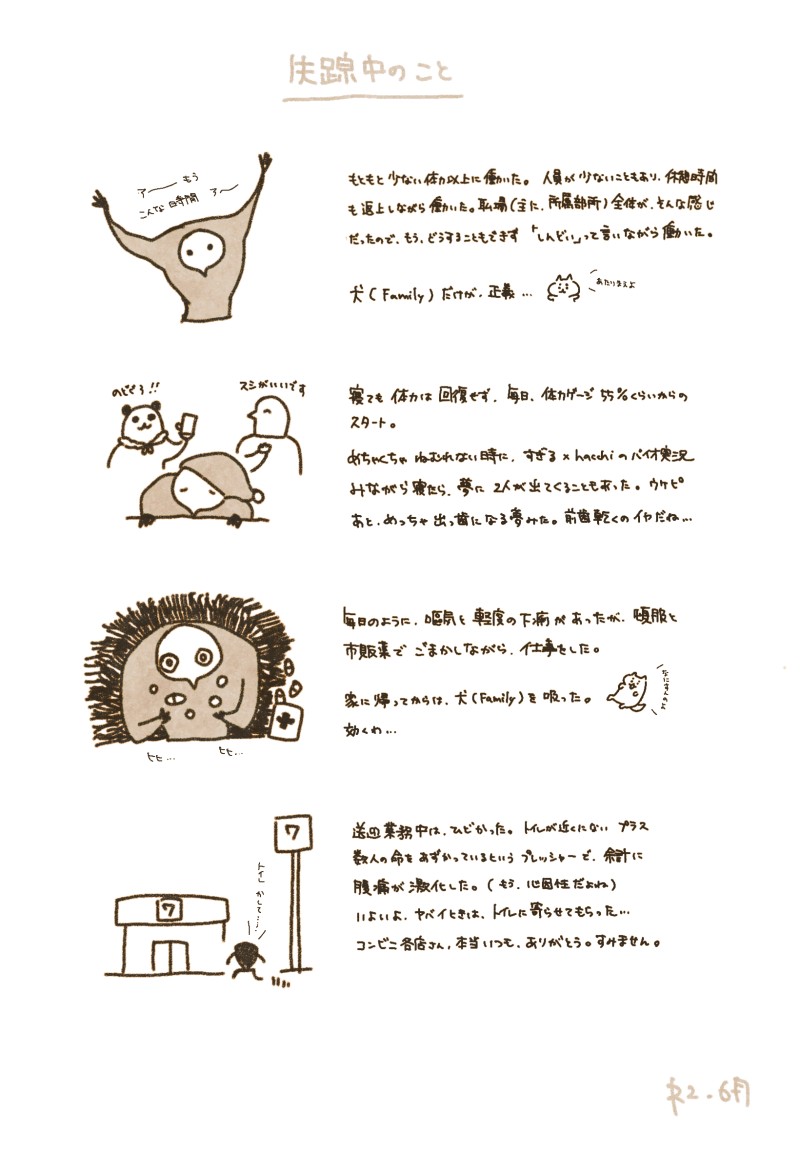 失踪中のこと
ア〜〜 もう
こんな時間 ア〜
もともと少ない体力以上に働いた。人員が少ないこともあり、休憩時間
も返上しながら働いた。職場(主に、所属部所)全体が、そんな感じ
だったので、もう、どうすることもできず「しんどい」って言いながら働いた。
犬(Family)だけが、正義…
あたりまえよ
のどぐろ!!
スシがいいです
寝ても体力は回復せず、毎日、体力ゲージ55%くらいからの
スタート。
めちゃくちゃねむれない時に、すぎる×hacchiのバイオ実況
みながら寝たら、夢に2人が出てくることもあった。ウケピ
あと、めっちゃ出っ歯になる夢みた。前歯乾くのイヤだね…
毎日のように、嘔気と軽度の下痢があったが、頓服と
市販薬でごまかしながら、仕事をした。
家に帰ってからは、犬(Family)を吸った。
効くわ…
なにすんのよ
ヒヒ… ヒヒ…
送迎業務中は、ひどかった。トイレが近くにない プラス
数人の命をあずかっているというプレッシャーで、余計に
腹痛が激化した。(もう、心因性だよね)
いよいよ、ヤバイときは、トイレに寄らせてもらった…
コンビニ各店さん、本当いつも、ありがとう。すみません。
7
7
トイレ かして…!
R2.6月